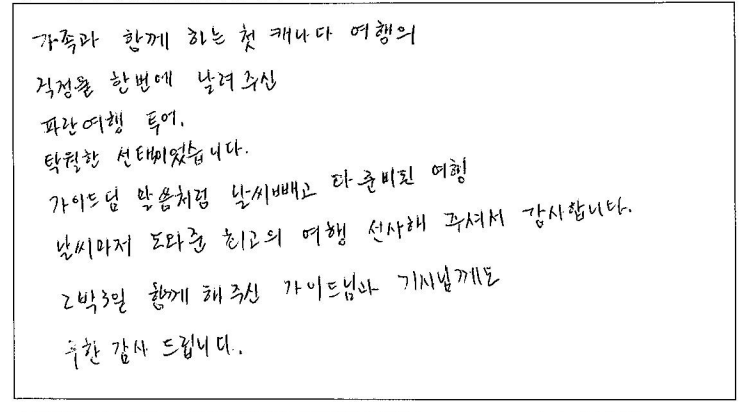 가족과 함께 하는 첫 캐나다 여행의
걱정을 한번에 날려주신
파란여행 투어.
탁월한 선택이었습니다.
가이드님 말씀처럼 날씨빼고 다 준비된 여행
날씨마저 도와준 최고의 여행 선사해 주셔서 감사합니다.
2박3일 함께 해주신 가이드님과 기사님께도
무한 감사 드립니다.